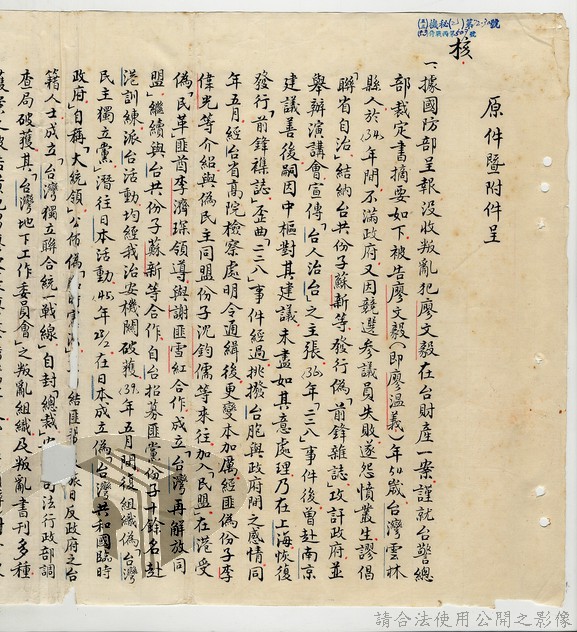 原件暨附件呈
核
一、據國防部呈報沒收叛亂犯廖文毅在台財產一案謹就台警總
部裁定書摘要如下被告廖文毅(即廖溫義)年54歲台灣雲林
縣人於34.年間不滿政府又因競選參議員失敗遂怨憤叢生謬倡
「聯省自治」結納台共份子蘇新等發行偽「前鋒雜誌」攻訐政府並
舉辦演講會宣傳「台人治台」之主張36.年「二二八」事件後曾赴南京
建議善後嗣因中樞對其建議未盡如其意處理乃在上海恢復
發行「前鋒襍誌」歪曲「二二八」事件經過挑撥台胞與政府間之感情同
年五月經台省高院檢察處明令通緝後更變本加厲經匪偽份子李
偉光等介紹與偽民主同盟份子沈鈞儒等來往加入「民盟」在港受
偽「民革匪酋李濟琛領導與謝匪雪紅合作成立「台灣再解放同
盟」繼續與台共份子蘇新等合作自台招募匪黨份子十餘名赴
港訓練派台活動均經我治安機關破獲39.年五月間復組織偽「台灣
民主獨立黨」潛往日本活動45.年2/28在日本成立偽「台灣共和國臨時
政府」自稱「大統領」公佈偽「
結匪
日反政府之台
籍人士成立「台灣獨立聯合統一戰線」自封「總裁」
司法行政部調
查局破獲其「台灣地下工作委員會」之叛亂組織及叛亂書刊多種
請合法使用公開之影像